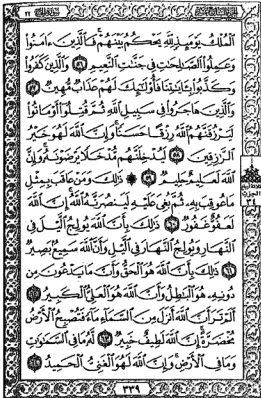 ٢٢
ٱلْمُلْكُ يَوْمَئِذٍ لِّلَّهِ يَحْكُمُ بَيْنَهُمْ فَٱلَّذِينَ ءَامَنُوا۟
وَعَمِلُوا۟ ٱلصَّٰلِحَٰتِ فِى جَنَّٰتِ ٱلنَّعِيمِ ٥٦ وَٱلَّذِينَ كَفَرُوا۟
وَكَذَّبُوا۟ بِـَٔايَٰتِنَا فَأُو۟لَٰٓئِكَ لَهُمْ عَذَابٌ مُّهِينٌ ٥٧
وَٱلَّذِينَ هَاجَرُوا۟ فِى سَبِيلِ ٱللَّهِ ثُمَّ قُتِلُوٓا۟ أَوْ مَاتُوا۟
لَيَرْزُقَنَّهُمُ ٱللَّهُ رِزْقًا حَسَنًا وَإِنَّ ٱللَّهَ لَهُوَ خَيْرُ
ٱلرَّٰزِقِينَ ٥٨ لَيُدْخِلَنَّهُم مُّدْخَلًا يَرْضَوْنَهُۥ وَإِنَّ
ٱللَّهَ لَعَلِيمٌ حَلِيمٌ ٥٩ ۞ ذَٰلِكَ وَمَنْ عَاقَبَ بِمِثْلِ
مَا عُوقِبَ بِهِۦ ثُمَّ بُغِىَ عَلَيْهِ لَيَنصُرَنَّهُ ٱللَّهُ إِنَّ ٱللَّهَ
لَعَفُوٌّ غَفُورٌ ٦٠ ذَٰلِكَ بِأَنَّ ٱللَّهَ يُولِجُ ٱلَّيْلَ فِى
ٱلنَّهَارِ وَيُولِجُ ٱلنَّهَارَ فِى ٱلَّيْلِ وَأَنَّ ٱللَّهَ سَمِيعٌۢ بَصِيرٌ
٦١ ذَٰلِكَ بِأَنَّ ٱللَّهَ هُوَ ٱلْحَقُّ وَأَنَّ مَا يَدْعُونَ مِن
دُونِهِۦ هُوَ ٱلْبَٰطِلُ وَأَنَّ ٱللَّهَ هُوَ ٱلْعَلِىُّ ٱلْكَبِيرُ ٦٢
أَلَمْ تَرَ أَنَّ ٱللَّهَ أَنزَلَ مِنَ ٱلسَّمَآءِ مَآءً فَتُصْبِحُ ٱلْأَرْضُ
مُخْضَرَّةً إِنَّ ٱللَّهَ لَطِيفٌ خَبِيرٌ ٦٣ لَّهُۥ مَا فِى ٱلسَّمَٰوَٰتِ
وَمَا فِى ٱلْأَرْضِ وَإِنَّ ٱللَّهَ لَهُوَ ٱلْغَنِىُّ ٱلْحَمِيدُ ٦٤
٣٤
٣٣٩